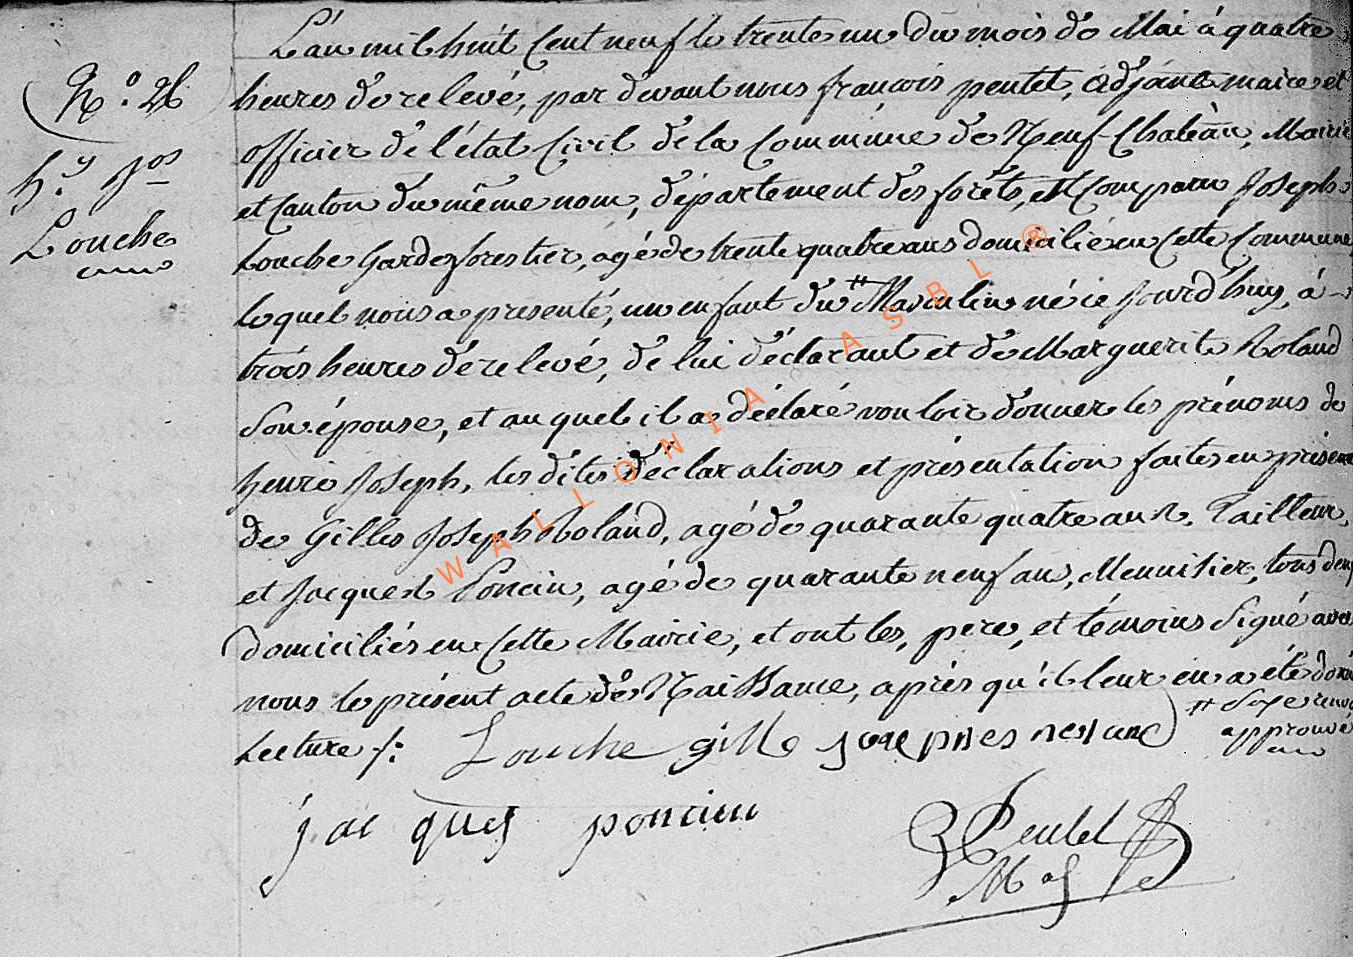 N.° 26
h.y Jos
Louche
L'an mil huit Cent neuf le trente un du mois de Mai à quatre
heures de relevé, par devant nous françois peutet, adjoint maire et
officier de l'état Civil de la Commune de Neuf-Chateau, Mairie
et Canton du même nom, département des forêts, est Comparu Joseph
Louche Garde forestier, agé de trente quatre ans domicilié en Cette Commune
lequel nous a presenté, un enfant du # Masculin né ce jourd'huy, à
trois heures de relevé, de lui déclarant et de Marguerite Roland
Son épouse, et auquel il a déclaré vouloir donner les prénoms de
henri Joseph, les dites déclarations et présentation faites en présence
de Gilles Joseph Roland, agé de quarante quatre ans, Tailleur,
et Jacques Poncin, agé de quarante neuf ans, Meunisier, tous deux
domiciliés en Cette Mairie, et ont les, pere, et témoins Signé avec
nous le présent acte de Naissance, après qu'il leur en a été donné
Lecture /:
# Sexe renvoi
approuvé
Louche gille
jaiques poncien
Peutet
WALLONIA ASBL ®